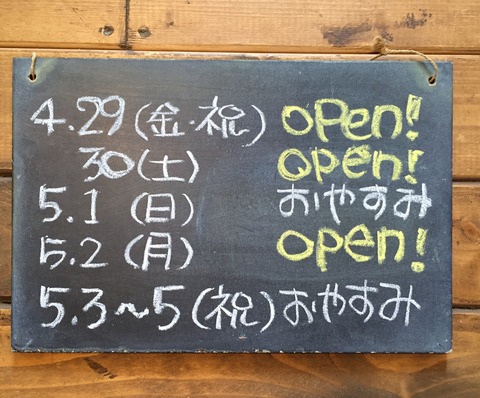 4.29(金・祝) open!
30(土) open!
5.1(日) おやすみ
5.2(月) open!
5.3~5(祝)おやすみ